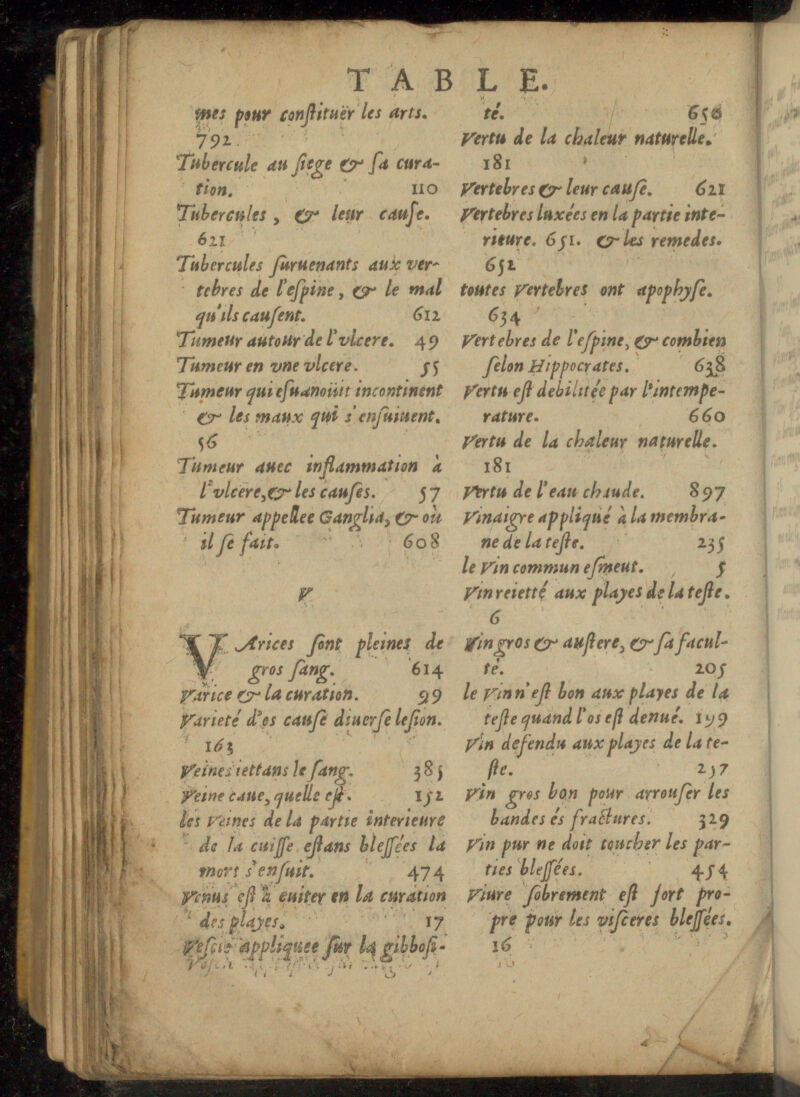 TABLE.
mes pour conſtituër les arts.
792
Tubercule au ſiege & ſa cura-
tion. 110
Tubercules, & leur cauſe.
621
Tubercules ſuruenants aux ver-
tebres de l'eſpine, & le mal
qu'ils cauſent. 612
Tumeur autour de l'vlcere. 49
Tumeur en vne vlcere. 55
Tumeur qui eſuanoüit incontinent
& les maux qui s'enſuiuent.
56
Tumeur auec inflammation à
l'vlcere, & les cauſes. 57
Tumeur appellee Ganglia, & où
il ſe fait. 608
V
VArices ſont pleines de
gros ſang. 614
Varice & la curation. 99
Varieté d'os cauſe diuerſe leſion.
163
Veines iettans le ſang. 385
Veine caue, quelle eſt. 152
les Veines de la partie interieure
de la cuiſſe eſtans bleſſées la
mort s'enſuit. 474
Venus eſt à euiter en la curation
des playes. 17
appliquee ſur la gibboſi-
té. 650
Vertu de la chaleur naturelle.
181
Vertebres & leur cauſe. 621
Vertebres luxées en la partie inte-
rieure. 651. & les remedes.
652
toutes Vertebres ont apophyſe.
634
Vertebres de l'eſpine, & combien
ſelon Hippocrates. 638
Vertu eſt debilitée par l'intempe-
rature. 660
Vertu de la chaleur naturelle.
181
Vertu de l'eau chaude. 897
Vinaigre appliqué à la membra-
ne de la teſte. 235
le Vin commun eſmeut. 5
Vin reietté aux playes de la teſte.
6
Vin gros & auſtere, & ſa facul-
té. 205
le Vin n'eſt bon aux playes de la
teſte quand l'os eſt denué. 199
Vin defendu aux playes de la te-
ſte. 257
Vin gros bon pour arrouſer les
bandes és fractures. 329
Vin pur ne doit toucher les par-
ties bleſſées. 454
Viure ſobrement eſt fort pro-
pre pour les viſceres bleſſées.
16